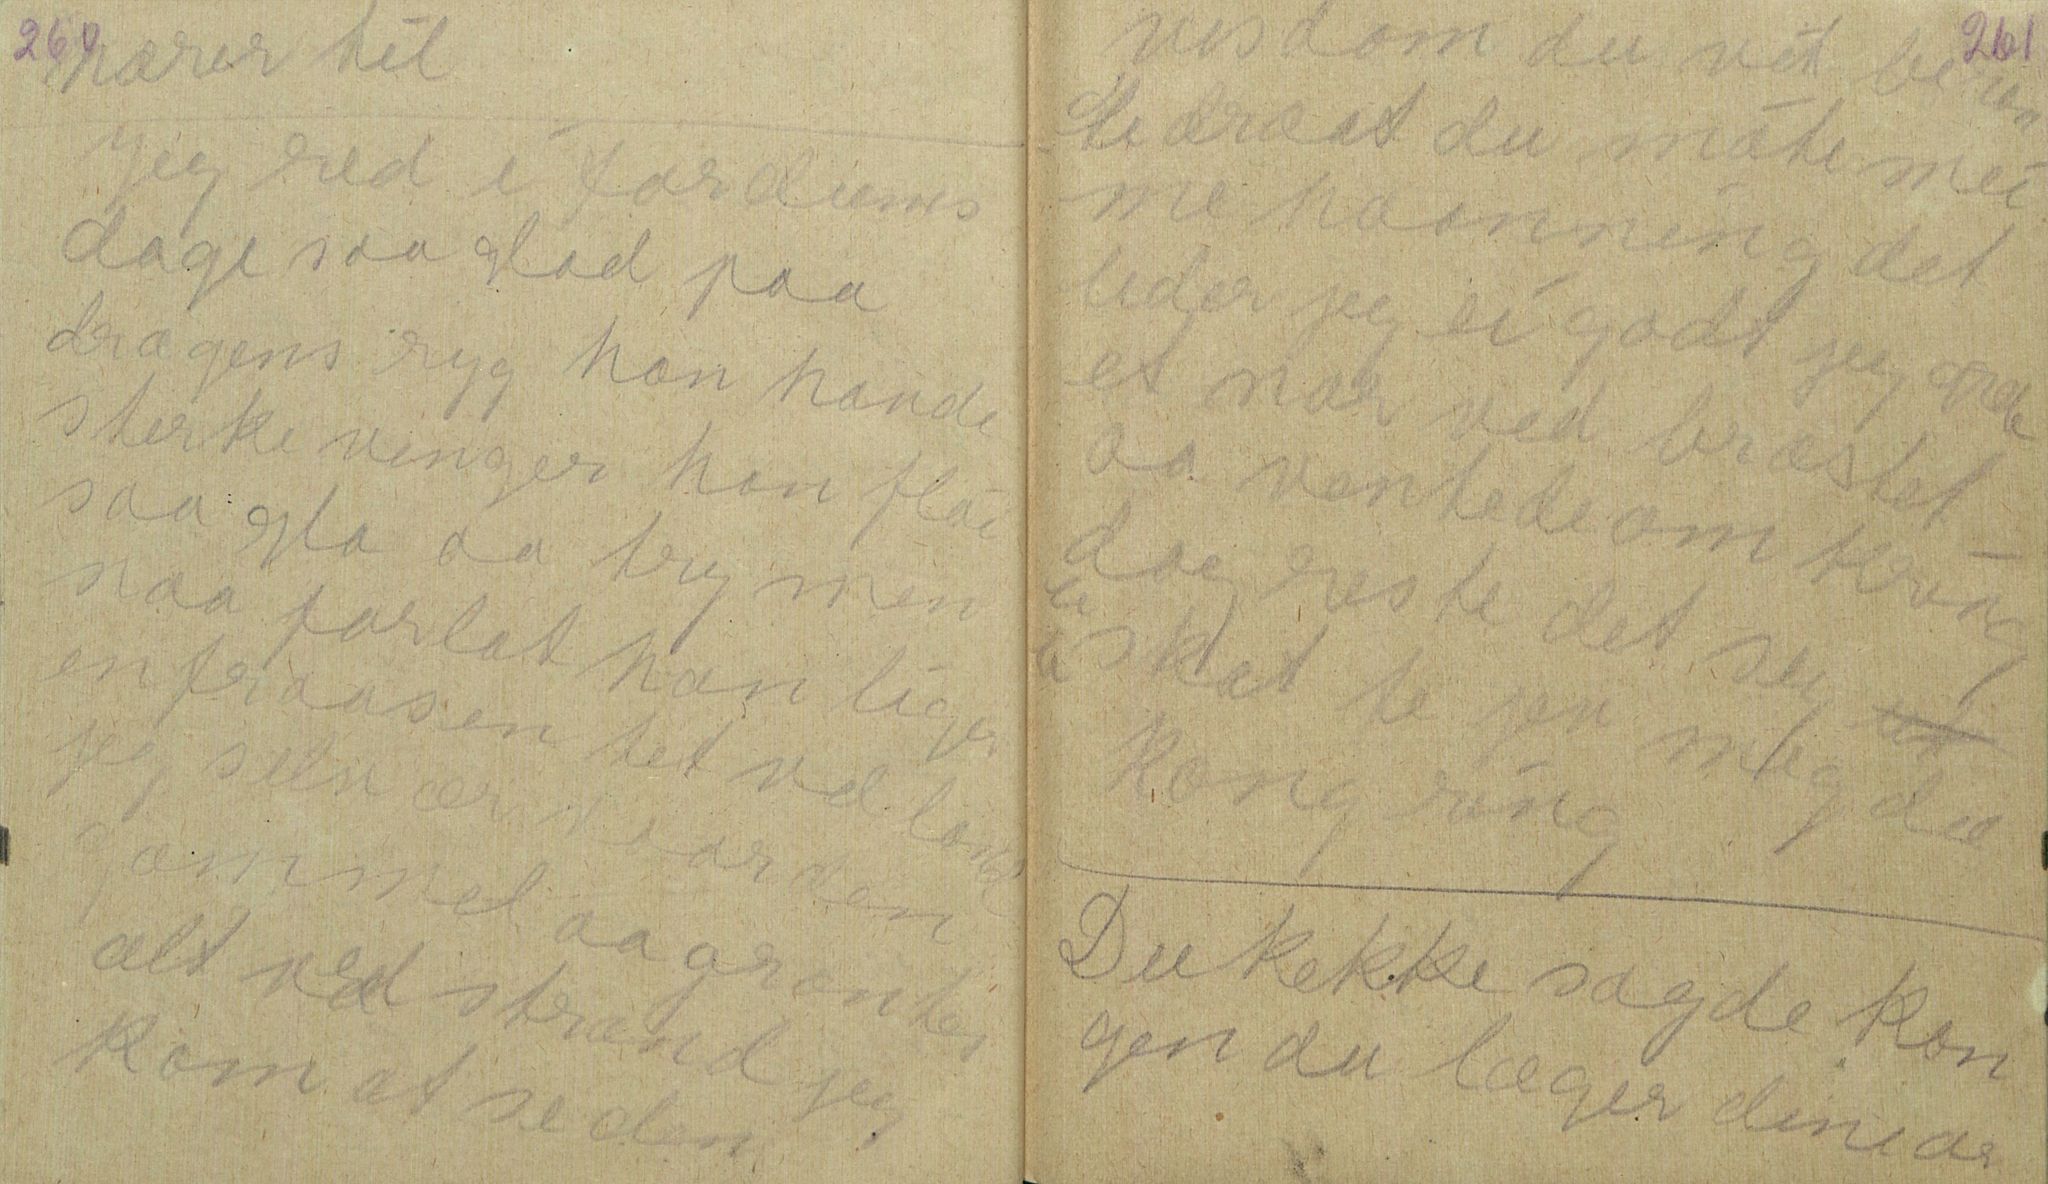 260
hærer til
jeg red i fordums
dage saa glad paa
dragens ryg han hande
sterke vinger han fløi
saa gla aa tryg men
naa forlat han liger
en fraasen tet ved land
jeg selv ær vorden
gammel aa grønter
alt ved strand jeg
kom at se den
261
visdom du vit beran
te ærat du måte mei
me haanning det
lider jeg ei godt jeg
et nær ved bræstet
aa ventede om kring
dog reste det sei
skat te jen meg du
Kong ring
Du kekke sagde kon
gen du læger dine ar